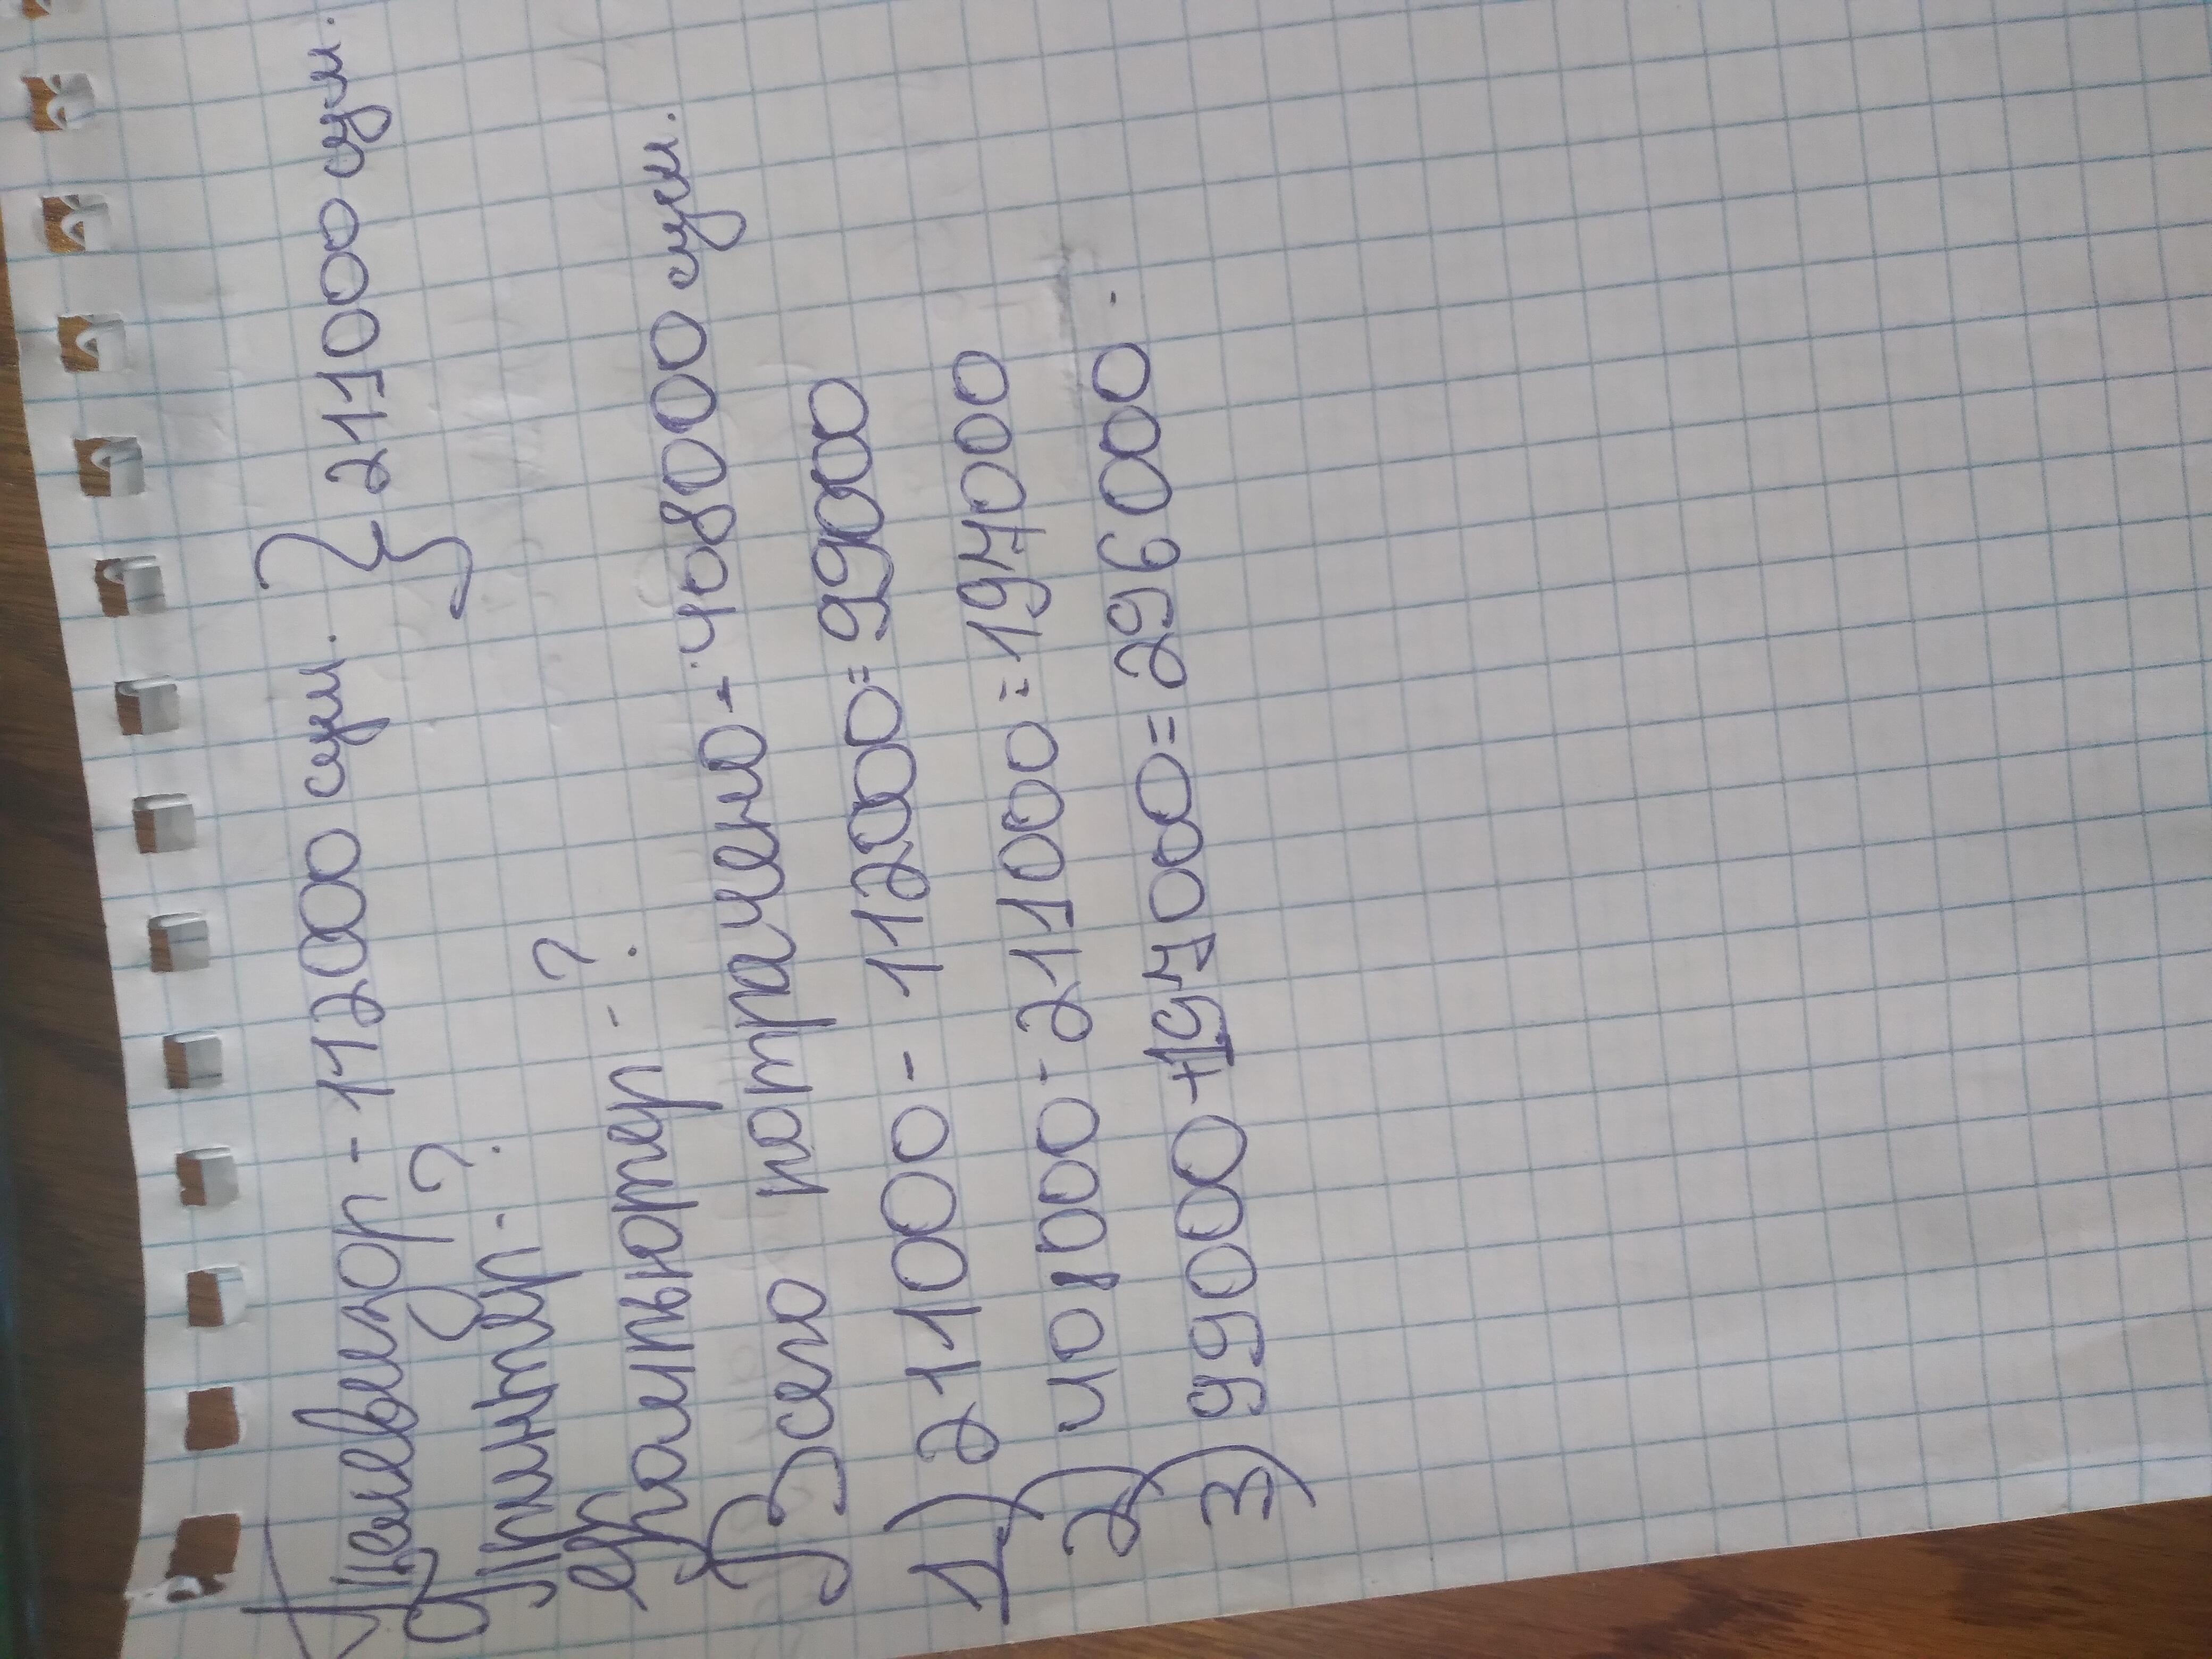 Телевизор - 112000 сум. } 211000 сум.
Принтер - ?
Компьютер - ?
Всего потрачено - 408000 сум.
1) 211000 - 112000 = 99000
2) 408000 - 211000 = 197000
3) 99000 + 197000 = 296000.